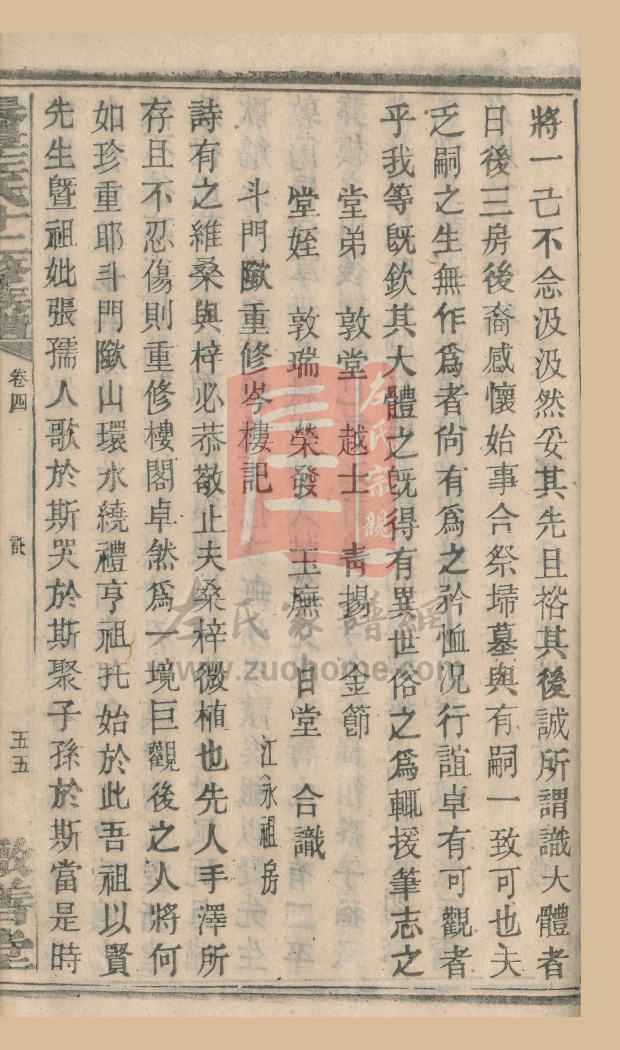 將一己不念汲汲然妥其先且裕其後誠所謂識大體者
日後三房後裔感懷始事合祭埽墓與有嗣一致可也夫
乏嗣之生無作爲者尙有爲之矜恤况行誼卓有可觀者
乎我等旣欽其大體之旣得有異世俗之爲輒援筆志之
堂弟 敦堂 越士 靑揚 金節
堂姪 敦瑞 榮發 玉廡 甘堂 合識
斗門歐重修岑樓記 江永祖房
詩有之維桑與梓必恭敬止夫桑梓微植也先人手澤所
存且不忍傷則重修樓閣卓然爲一境巨觀後之人將何
如珍重耶斗門歐山環水繞禮亨祖托始於此吾祖以賢
先生曁祖妣張孺人歌於斯哭於斯聚子孫於斯當是時
卷四 記 五五
敬善堂
左氏宗親
左氏家譜網
www.zuohome.com